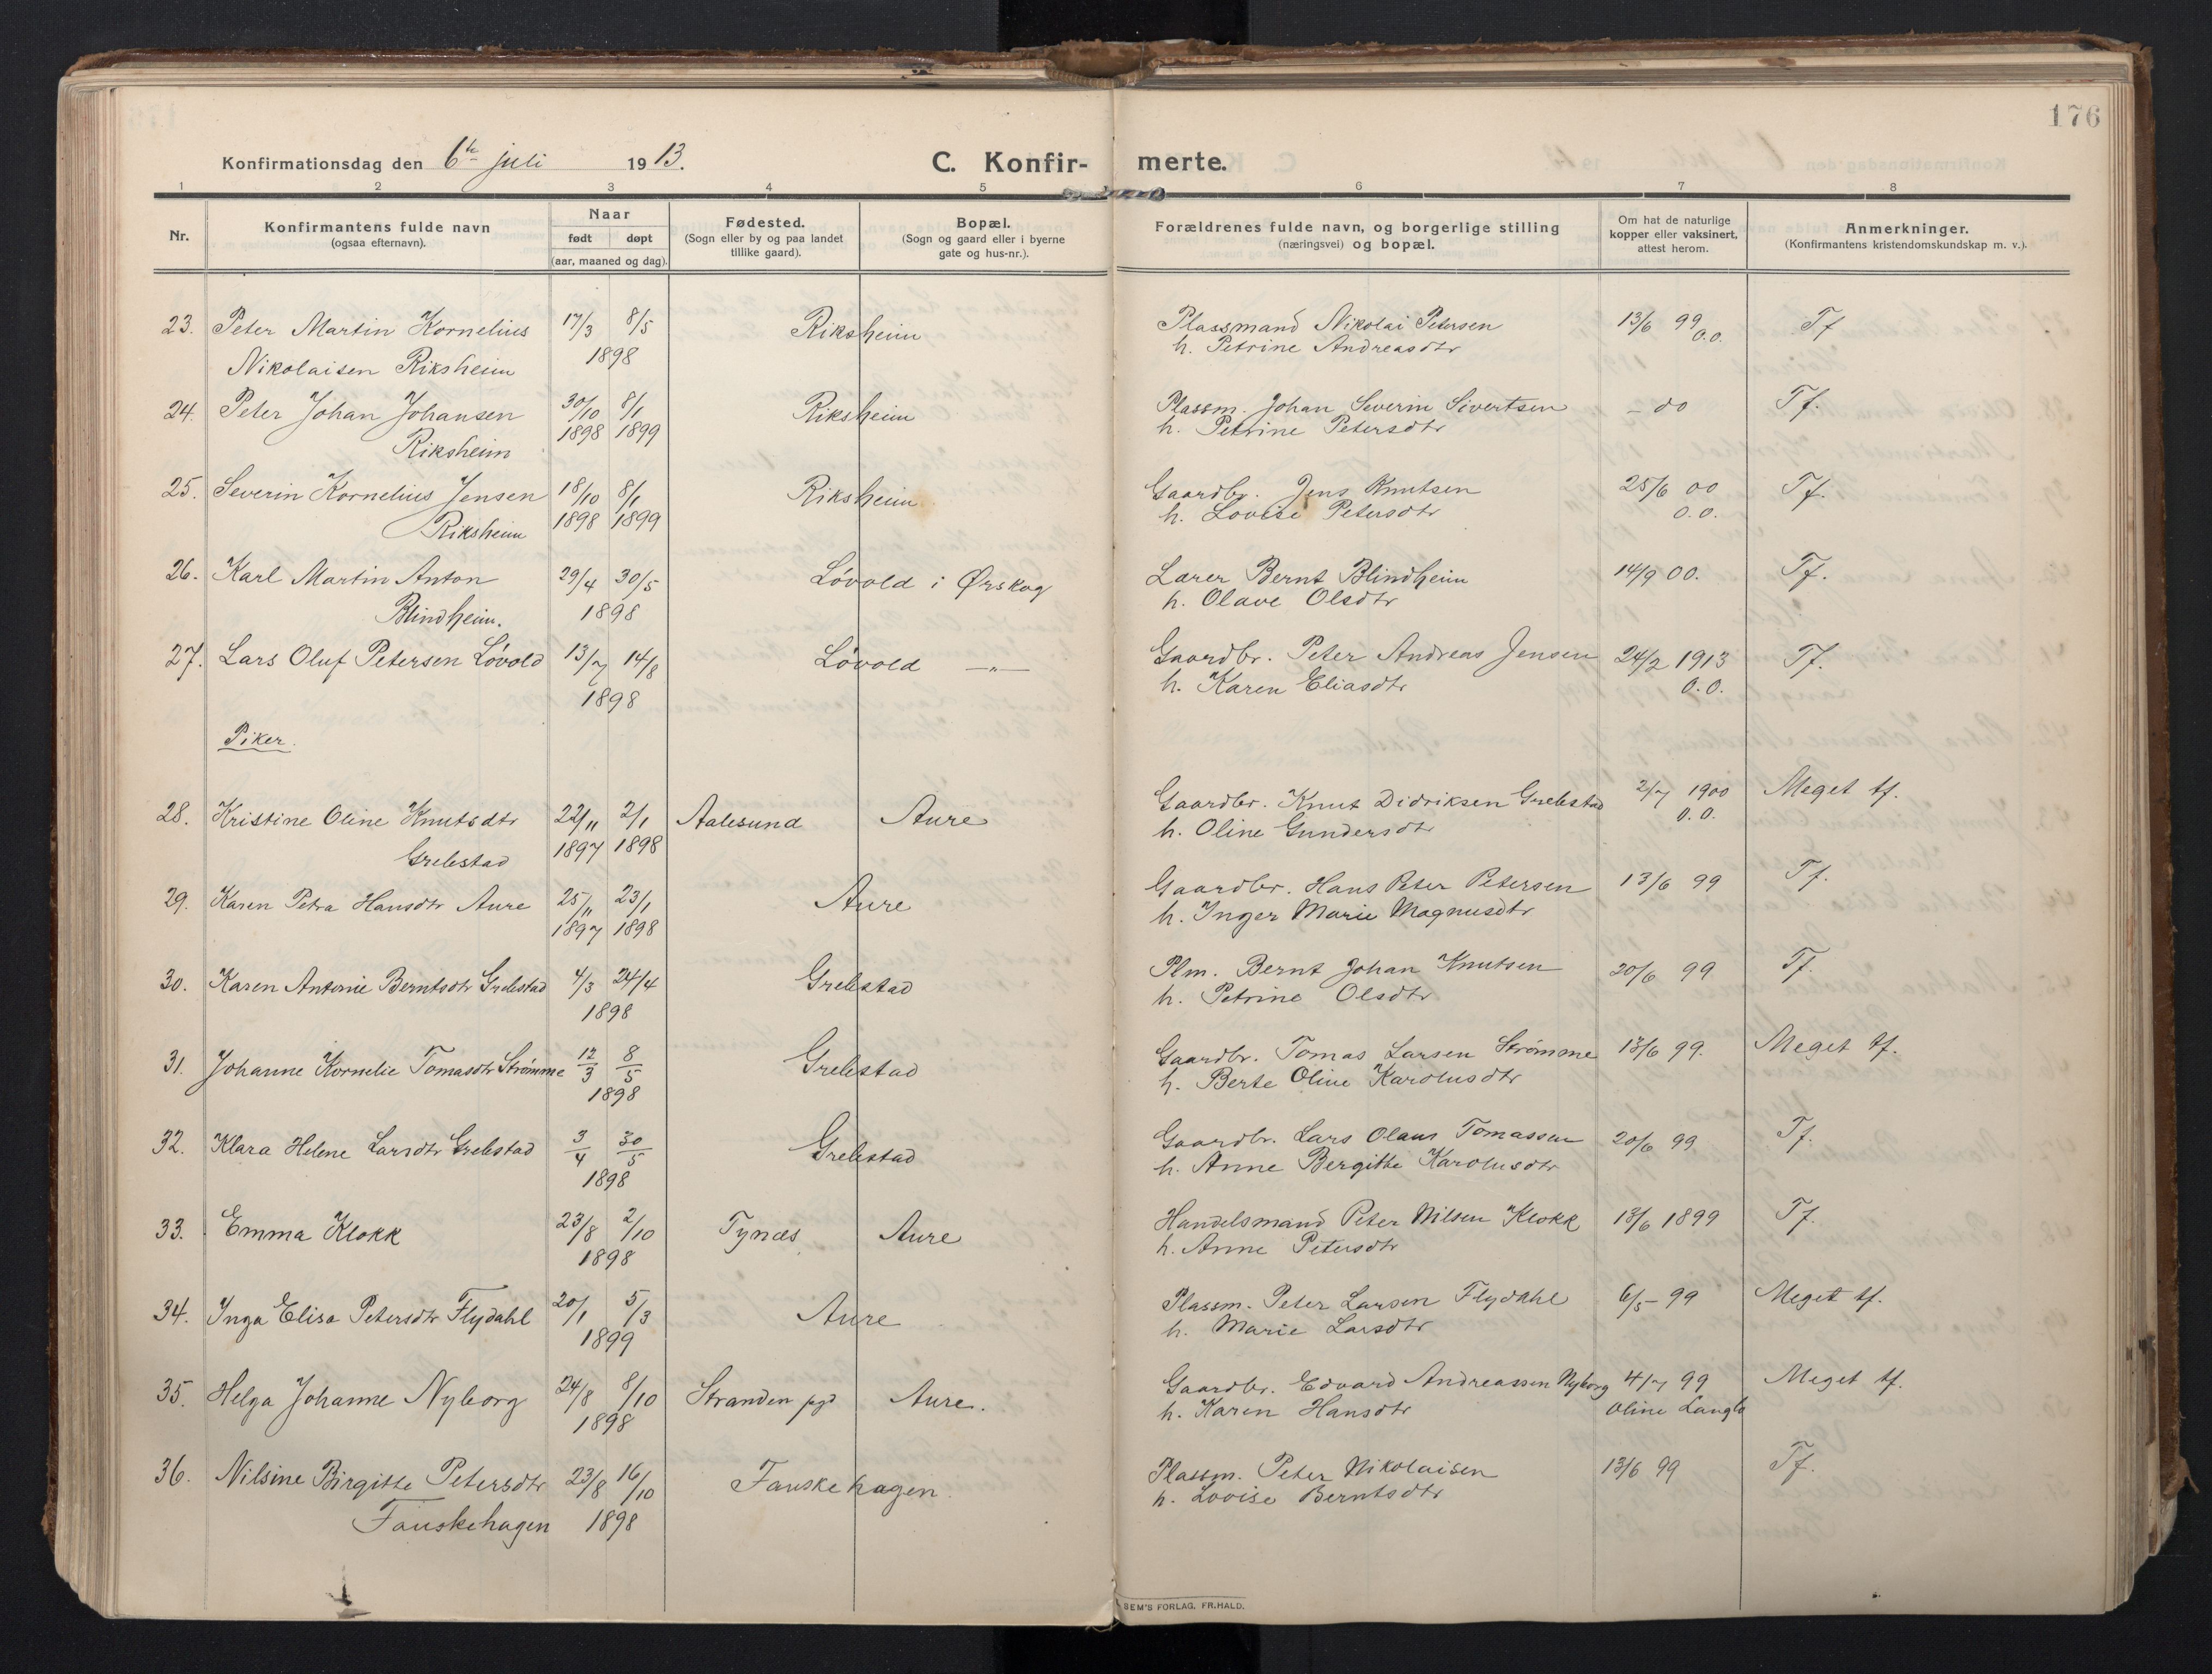 176
Konfirmationsdag den 6te juli 1913.
C. Konfir-merte.
1 2 3 4 5 6 7 8
Nr.
Konfirmantens fulde navn
(ogsaa efternavn).
Naar
født døpt
(aar, maaned og dag).
Fødested.
(Sogn eller by og paa landet
tillike gaard).
Bopæl.
(Sogn og gaard eller i byerne
gate og hus-nr.).
Forældrenes fulde navn, og borgerlige stilling
(næringsvei) og bopæl.
Om hat de naturlige
kopper eller vaksinert,
attest herom.
Anmerkninger.
(Konfirmantens kristendomskundskap m. v.).
23. Peter Martin Kornelius 17/3 8/5 Riksheim Plassmand Nikolai Petersen 13/6 99 Tf
Nikolaisen Riksheim 1898 h. Petrine Andreasdtr O.O.
24. Peter Johan Johansen 30/10 8/1 Riksheim Plassm. Johan Severin Sivertsen - do Tf.
Riksheim 1898 1899 h. Petrine Petersdtr
25. Severin Kornelius Jensen 18/10 8/1 Riksheim Gaardbr. Jens Knutsen 25/6 00 Tf.
Riksheim 1898 1899 h. Lovise Petersdtr O.O.
26. Karl Martin Anton 29/4 30/5 Løvold i Ørskog Lærer Bernt Blindheim 14/9 00. Tf.
Blindheim. 1898 h. Olave Olsdtr
27. Lars Oluf Petersen Løvold 13/7 14/8 Løvold -"- Gaardbr. Peter Andreas Jensen 24/2 1913 Tf.
1898 h. Karen Eliasdtr O.O.
Piker.
28. Kristine Oline Knutsdtr 22/11 2/1 Aalesund Aure Gaardbr. Knut Didriksen Grebstad 2/7 1900 Meget tf.
Grebstad 1897 1898 h. Oline Gundersdtr O.O.
29. Karen Petra Hansdtr Aure 25/11 23/1 Aure Gaardbr. Hans Peter Petersen 13/6 99 Tf.
1897 1898 h. Inger Marie Magnusdtr
30. Karen Antonie Berntsdtr Grebstad 4/3 24/4 Grebstad Plm. Bernt Johan Knutsen 20/6 99 Tf.
1898 h. Petrine Olsdtr
31. Johanne Kornelie Tomasdtr Strømme 12/3 8/5 Grebstad Gaardbr. Tomas Larsen Strømme 13/6 99. Meget tf.
1898 h. Berte Oline Karolusdtr
32. Klara Helene Larsdtr Grebstad 3/4 30/5 Grebstad Gaardbr. Lars Olaus Tomassen 20/6 99 Tf.
1898 h. Anne Bergitte Karolusdtr
33. Emma Klokk 23/8 2/10 Tynes Aure Handelsmand Peter Nilsen Klokk 13/6 1899 Tf.
1898 h. Anne Petersdtr
34. Inga Elisa Petersdtr Flydahl 20/1 5/3 Aure Plassm. Peter Larsen Flydahl 6/5 - 99 Meget tf.
1899 h. Marie Larsdtr
35. Helga Johanne Nyborg 24/8 8/10 Stranden pgd Aure. Gaardbr. Edvard Andreassen Nyborg 4/7 99 Meget tf.
1898 h. Karen Hansdtr Oline Langlo
36. Nilsine Birgitte Petersdtr 23/8 16/10 Fauskehagen. Plassm. Peter Nikolaisen 13/6 99 Tf.
Fauskehagen 1898 h. Lovise Berntsdtr
SEM'S FORLAG, FR.HALD.